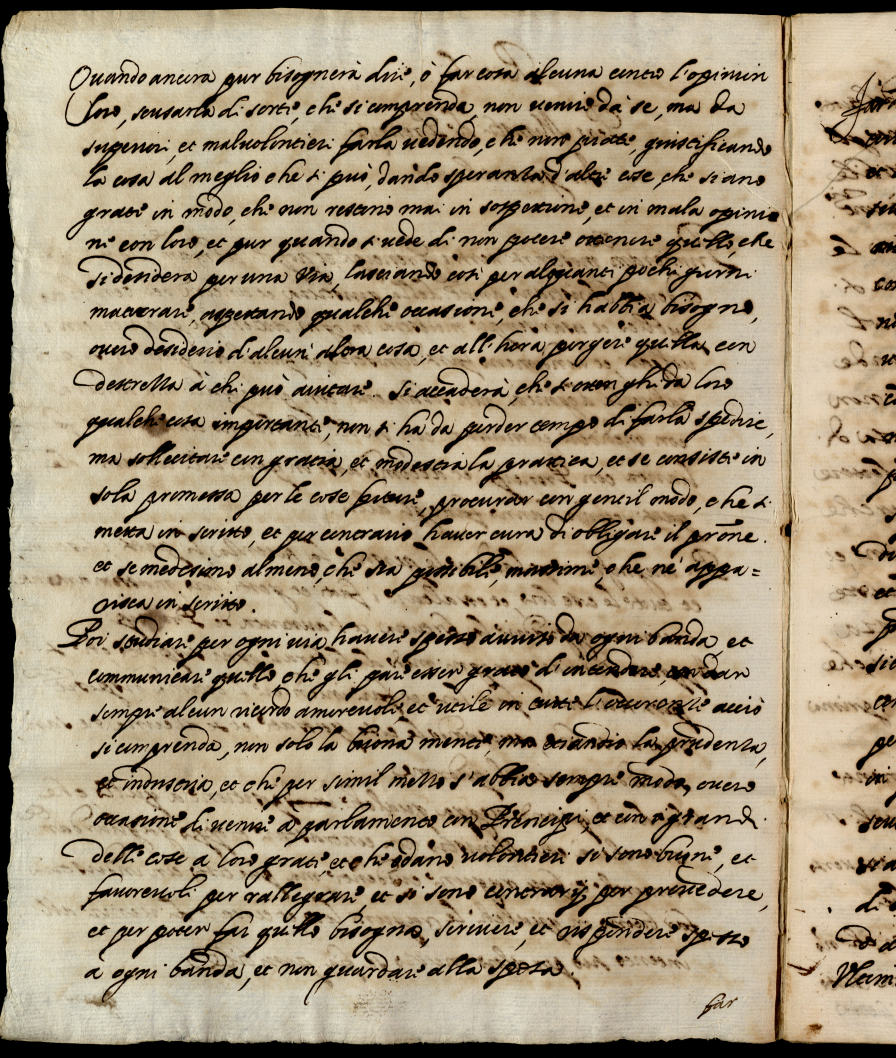 Quando ancora pur bisognerà dire, ò far cosa alcuna contro l'opinion
loro, scusarla di sorte, che si comprenda, non venire da se, ma da
superiori, et malvolontieri farla vedendo, che non piace, giustificando
la cosa al meglio che si può, dando speranza d'altre cose, che siano
grate in modo, che non restino mai in sospettione, et in mala opinio
ne con loro, et pur quando si vede di non potere ottenere quello, che
si desidera per una via, lasciando così per alquanti pochi giorni
maturare, aspettando qualche occasione, che si habbia bisogno,
overo desiderio d'alcuna altra cosa, et all'hora porgere quella con
destrezza à chi può aiutare. Si accaderà, che si ottenghi da loro
qualche cosa importante, non si ha da perder tempo di farla spedire,
ma sollecitare con gratia, et modestia la pratica, et se consiste in
sola promessa per le cose future, procurar con gentil modo, che si
metta in scritto, et per contrario haver cura di obligare il prone.
et se medesimo almeno, che sia possibile, massime, che ne appa=
risca in scritto.
Poi studiare per ogni via havere spesso avvisi da ogni banda, et
communicare quello che gli pare esser grato di intendere, con dar
sempre alcun ricordo amorevole, et utile in tutte l'occorrenze acciò
si comprenda, non solo la buona mente, ma etiandio la prudenza,
et industria, et che per simil mezzo s'abbia sempre modo, overo
occasione di venire a parlamento con Prencipi, et con i grandi
delle cose a loro grate, et che odano volontieri si sono buone, et
favorevoli per rallegrare et si sono contrarij per provedere,
et per poter far quello bisogna, scrivere, et rispondere spesso
a ogni banda, et non guardare alla spesa.
far